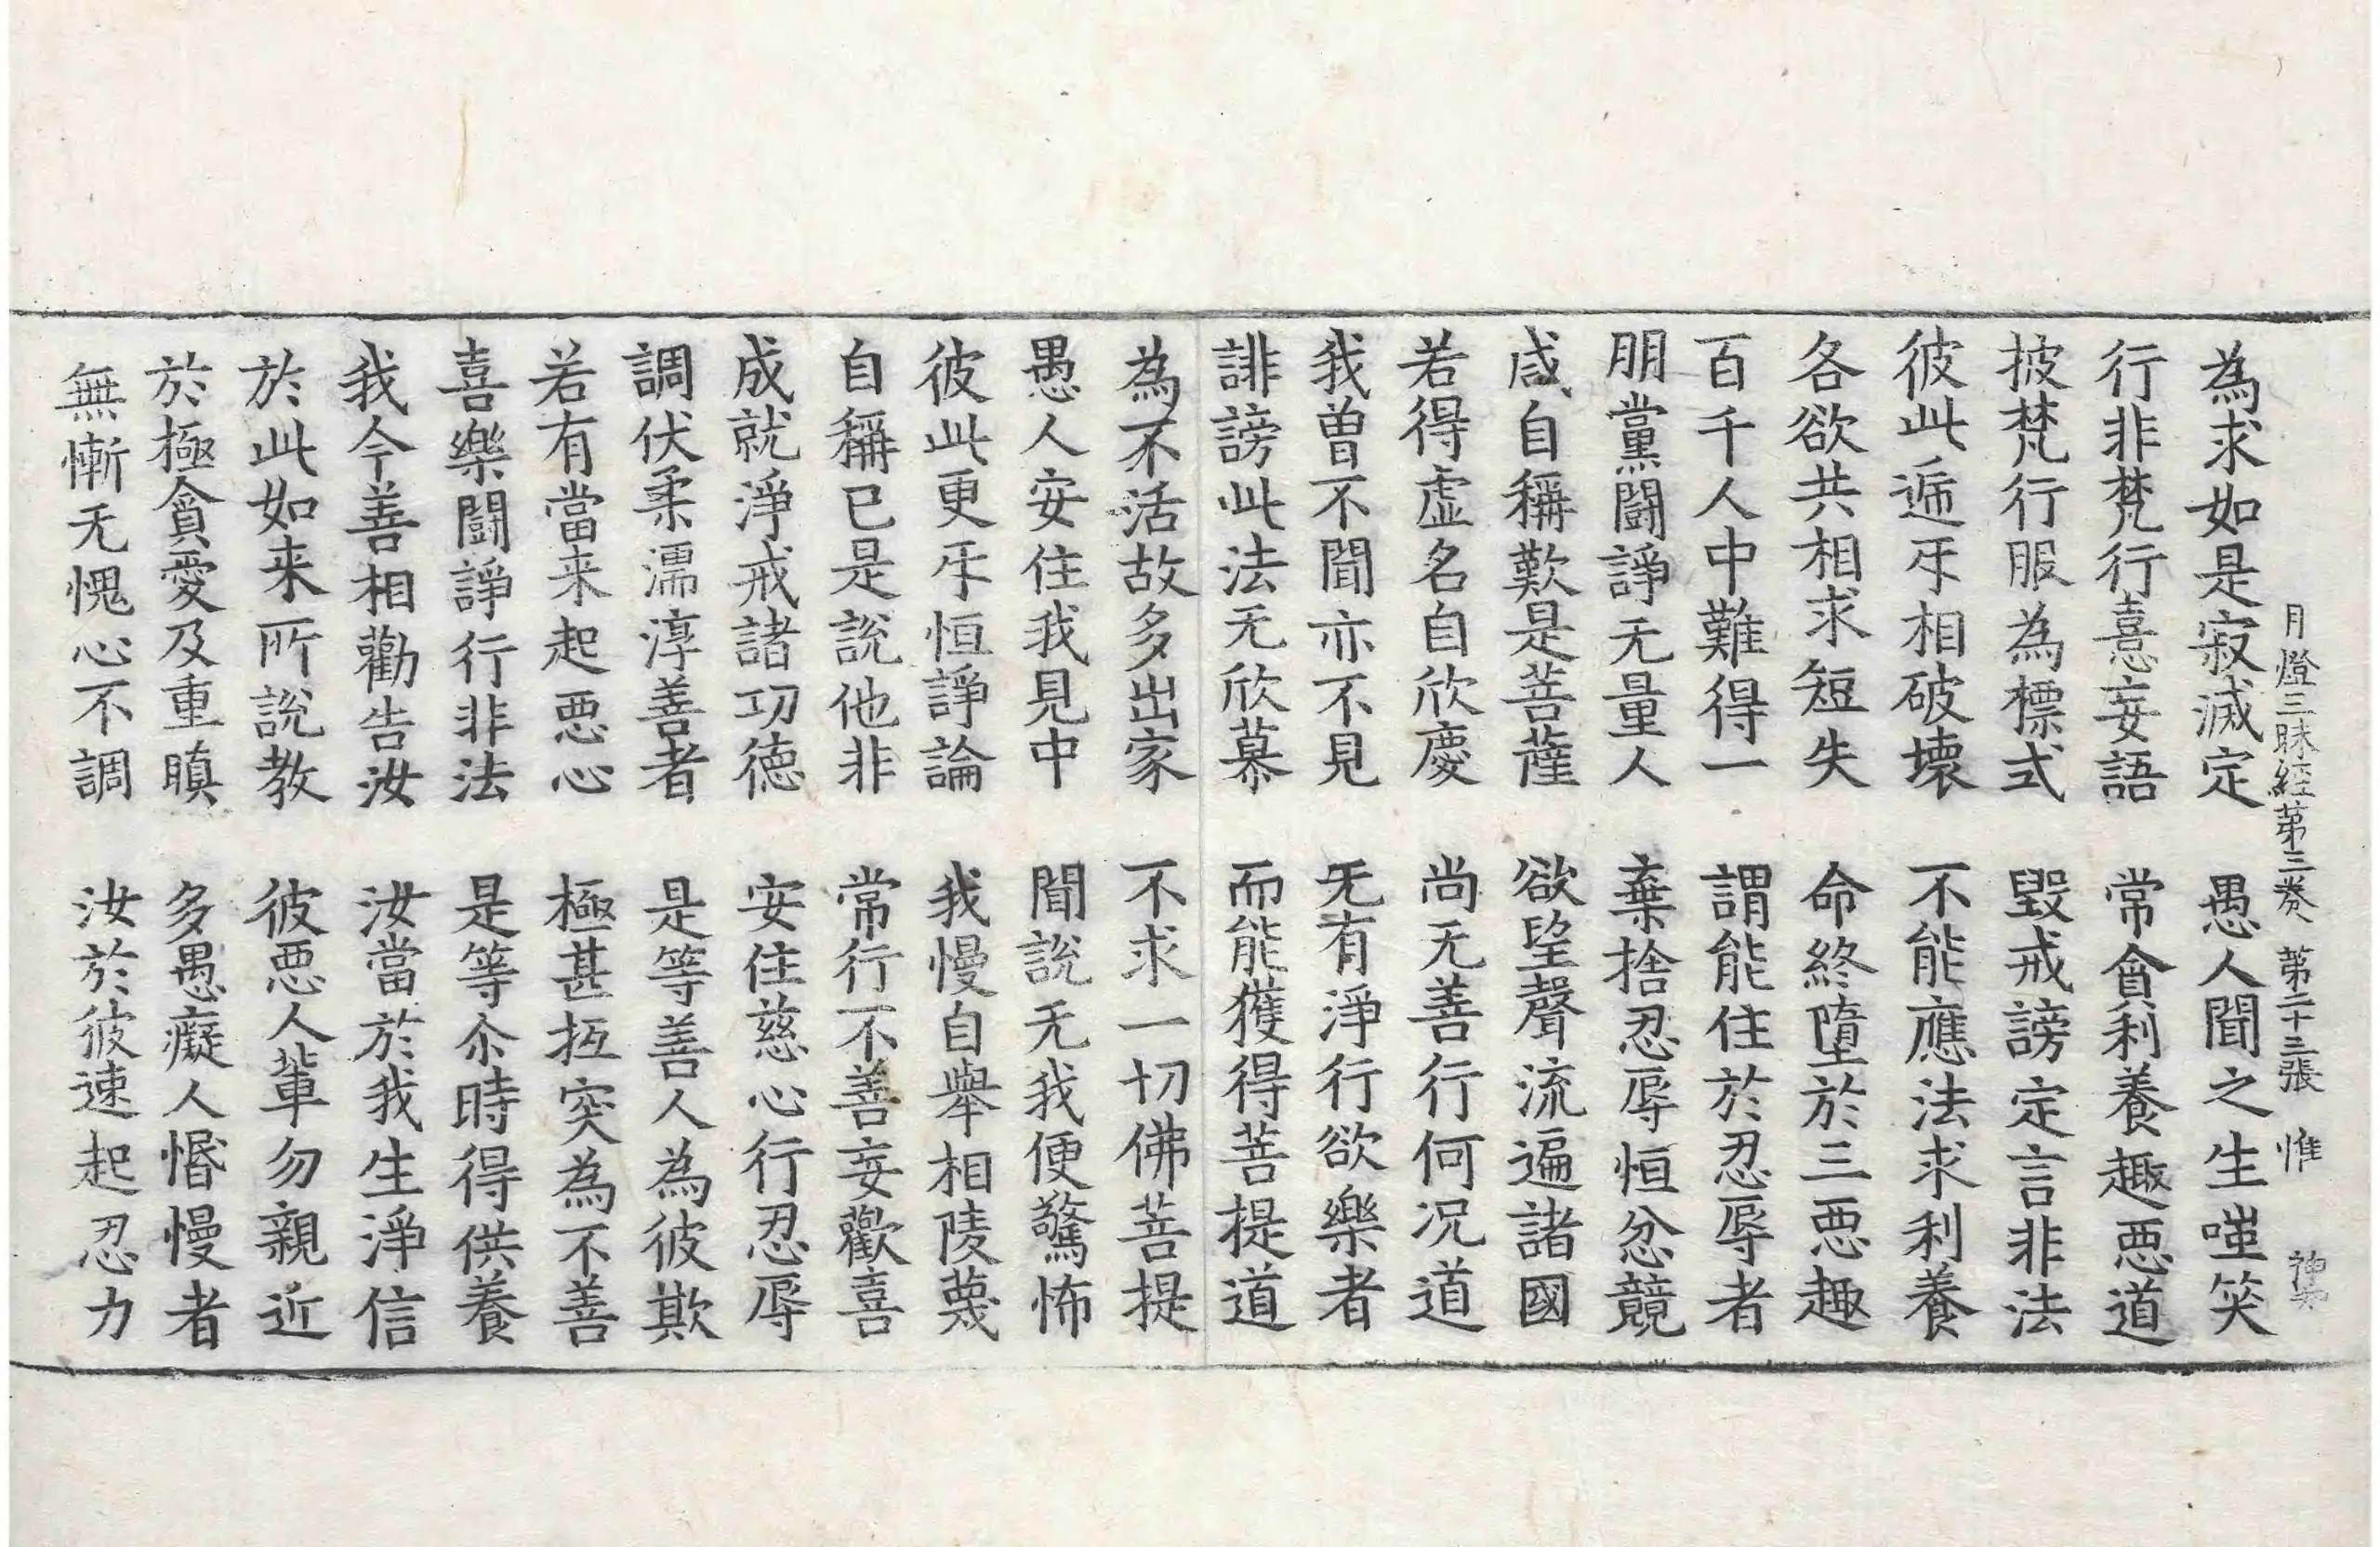 月燈三昧經第三卷 第二十三張 惟
為求如是寂滅定 愚人聞之生嗤笑
行非梵行憙妄語 常會利養趣惡道
披梵行服為標式 毀戒謗定言非法
彼此遞㸦相破壞 不能應法求利養
各欲共相求短失 命終墮於三惡趣
百千人中難得一 謂能住於忍辱者
朋黨鬪諍无量人 棄捨忍辱恒忿競
咸自稱歎是菩薩 欲望聲流遍諸國
若得虛名自欣慶 尚无善行何況道
我曾不聞亦不見 无有淨行欲樂者
誹謗此法无欣慕 而能獲得菩提道
為不活故多出家 不求一切佛菩提
愚人安住我見中 聞說无我便驚怖
彼此更㸦恒諍論 我慢自舉相陵蔑
自稱已是說他非 常行不善妄歡喜
成就淨戒諸功德 安住慈心行忍辱
調伏柔濡淳善者 是等善人為彼欺
若有當来起惡心 極甚抂突為不善
喜樂鬪諍行非法 是等尒時得供養
我今善相勸告汝 汝當於我生淨信
於此如来所說教 彼惡人輩勿親近
於極貪愛及重瞋 多愚癡人惛慢者
無慚无愧心不調 汝於彼速起忍力